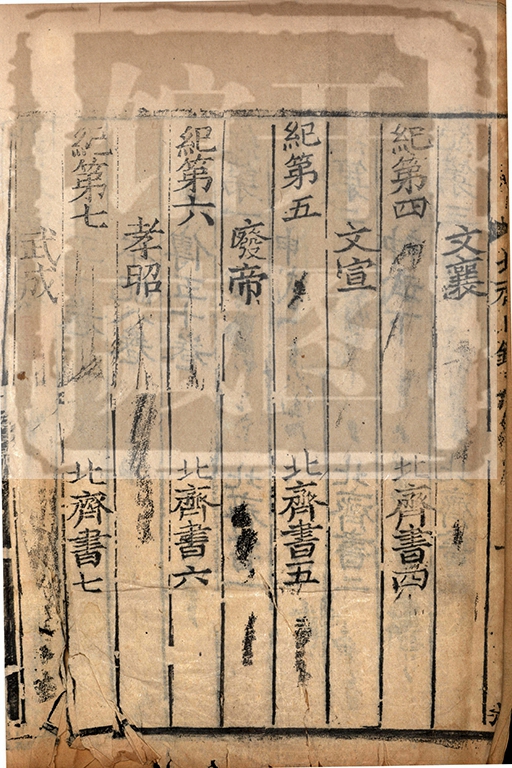 文襄
紀第四 北齊書四
文宣
紀第五 北齊書五
廢帝
紀第六 北齊書六
孝昭
紀第七 北齊書七
武成